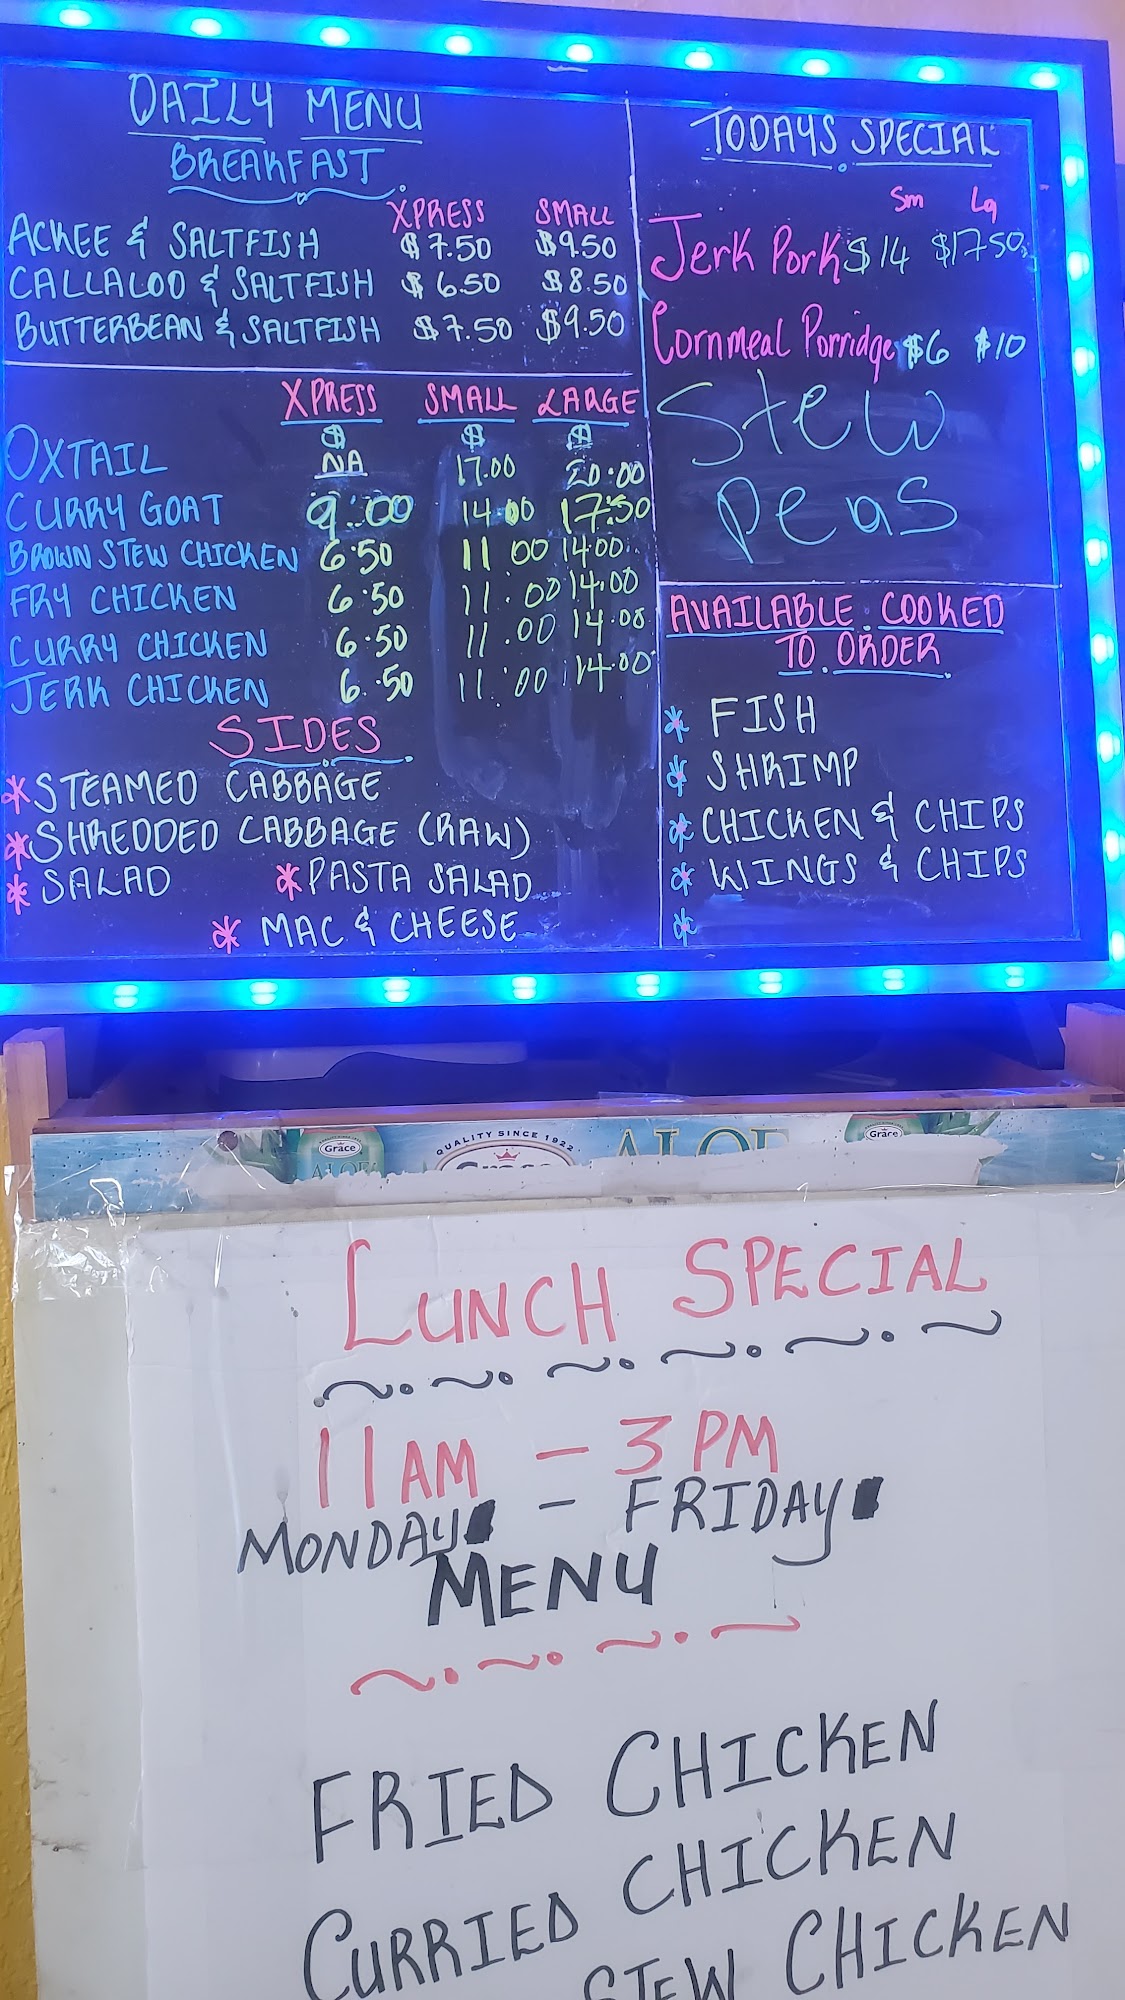 DAILY MENU
BREAKFAST
XPRESS SMALL
ACKEE & SALTFISH $7.50 $9.50
CALLALOO & SALTFISH $6.50 $8.50
BUTTERBEAN & SALTFISH $7.50 $9.50
XPRESS SMALL LARGE
$ $ $
OXTAIL NA 17.00 20.00
CURRY GOAT 9.00 14.00 17.50
BROWN STEW CHICKEN 6.50 11.00 14.00
FRY CHICKEN 6.50 11.00 14.00
CURRY CHICKEN 6.50 11.00 14.00
JERK CHICKEN 6.50 11.00 14.00
SIDES
* STEAMED CABBAGE
* SHREDDED CABBAGE (RAW)
* SALAD * PASTA SALAD
* MAC & CHEESE
TODAYS SPECIAL
Sm Lg
Jerk Pork $14 $17.50
Cornmeal Porridge $6 $10
Stew
peas
AVAILABLE COOKED
TO ORDER
* FISH
* SHRIMP
* CHICKEN & CHIPS
* WINGS & CHIPS
*
QUALITY SINCE 1922
Grace ALOE Grace ALOE Grace
LUNCH SPECIAL
11AM - 3PM
MONDAY - FRIDAY
MENU
FRIED CHICKEN
CURRIED CHICKEN
STEW CHICKEN